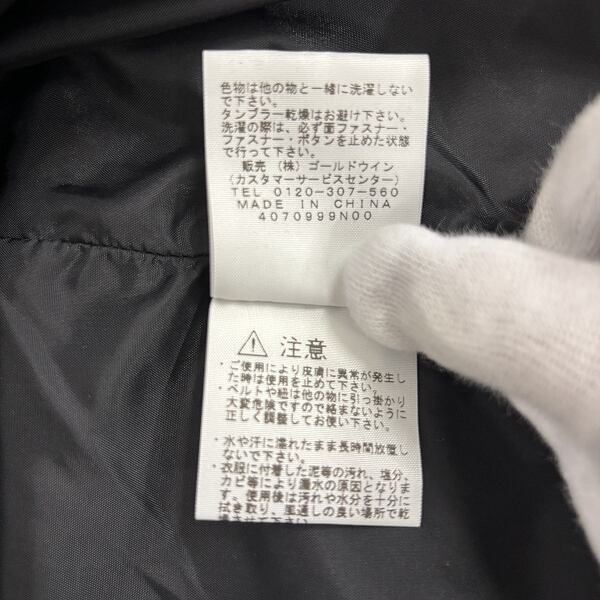 色物は他の物と一緒に洗濯しない
で下さい。
タンブラー乾燥はお避け下さい。
洗濯の際は、必ず面ファスナー・
ファスナー・ボタンを止めた状態
で行って下さい。
販売 (株) ゴールドウイン
(カスタマーサービスセンター)
TEL 0120-307-560
MADE IN CHINA
4070999N00
注意
・ご使用により皮膚に異常が発生し
た時は使用を止めて下さい。
・ベルトや紐は他の物に引っ掛かり
大変危険ですので絡まないように
正しく調整してお使い下さい。
・水や汗に濡れたまま長時間放置し
ないで下さい。
・衣服に付着した泥等の汚れ、塩分、
カビ等により漏水の原因となりま
す。使用後は汚れや水分を十分に
拭き取り、風通しの良い場所で乾
燥させて下さい。